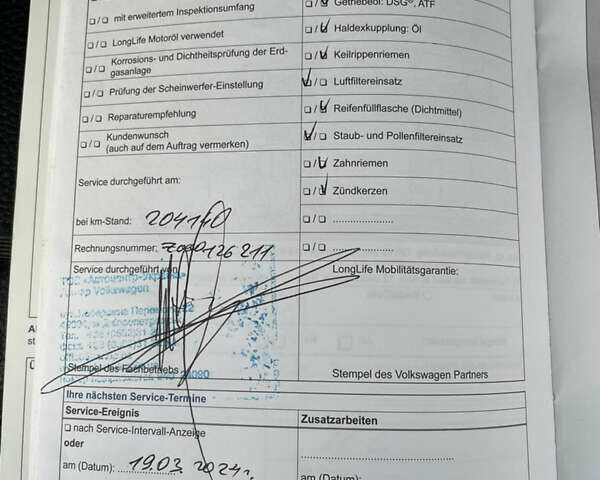 ❏/❏ mit erweitertem Inspektionsumfang
❏/❏ LongLife Motoröl verwendet
❏/❏ Korrosions- und Dichtheitsprüfung der Erd-
gasanlage
❏/❏ Prüfung der Scheinwerfer-Einstellung
❏/❏ Reparaturempfehlung
❏/❏ Kundenwunsch
(auch auf dem Auftrag vermerken)
Service durchgeführt am:
bei km-Stand: 204140
Rechnungsnummer:
Service durchgeführt von
Volkswagen
Stempel des Fachbetriebs
❏/❏ Getriebeöl: DSG®, ATF
❏/❏ Haldexkupplung: Öl
❏/❏ Keilrippenriemen
❏/❏ Luftfiltereinsatz
❏/❏ Reifenfüllflasche (Dichtmittel)
❏/❏ Staub- und Pollenfiltereinsatz
❏/❏ Zahnriemen
❏/❏ Zündkerzen
❏/❏ ....................
❏/❏ ....................
LongLife Mobilitätsgarantie:
Stempel des Volkswagen Partners
Ihre nächsten Service-Termine
Service-Ereignis
❏ nach Service-Intervall-Anzeige
oder
am (Datum): 19.03.2024г.
Zusatzarbeiten
am (Datum):